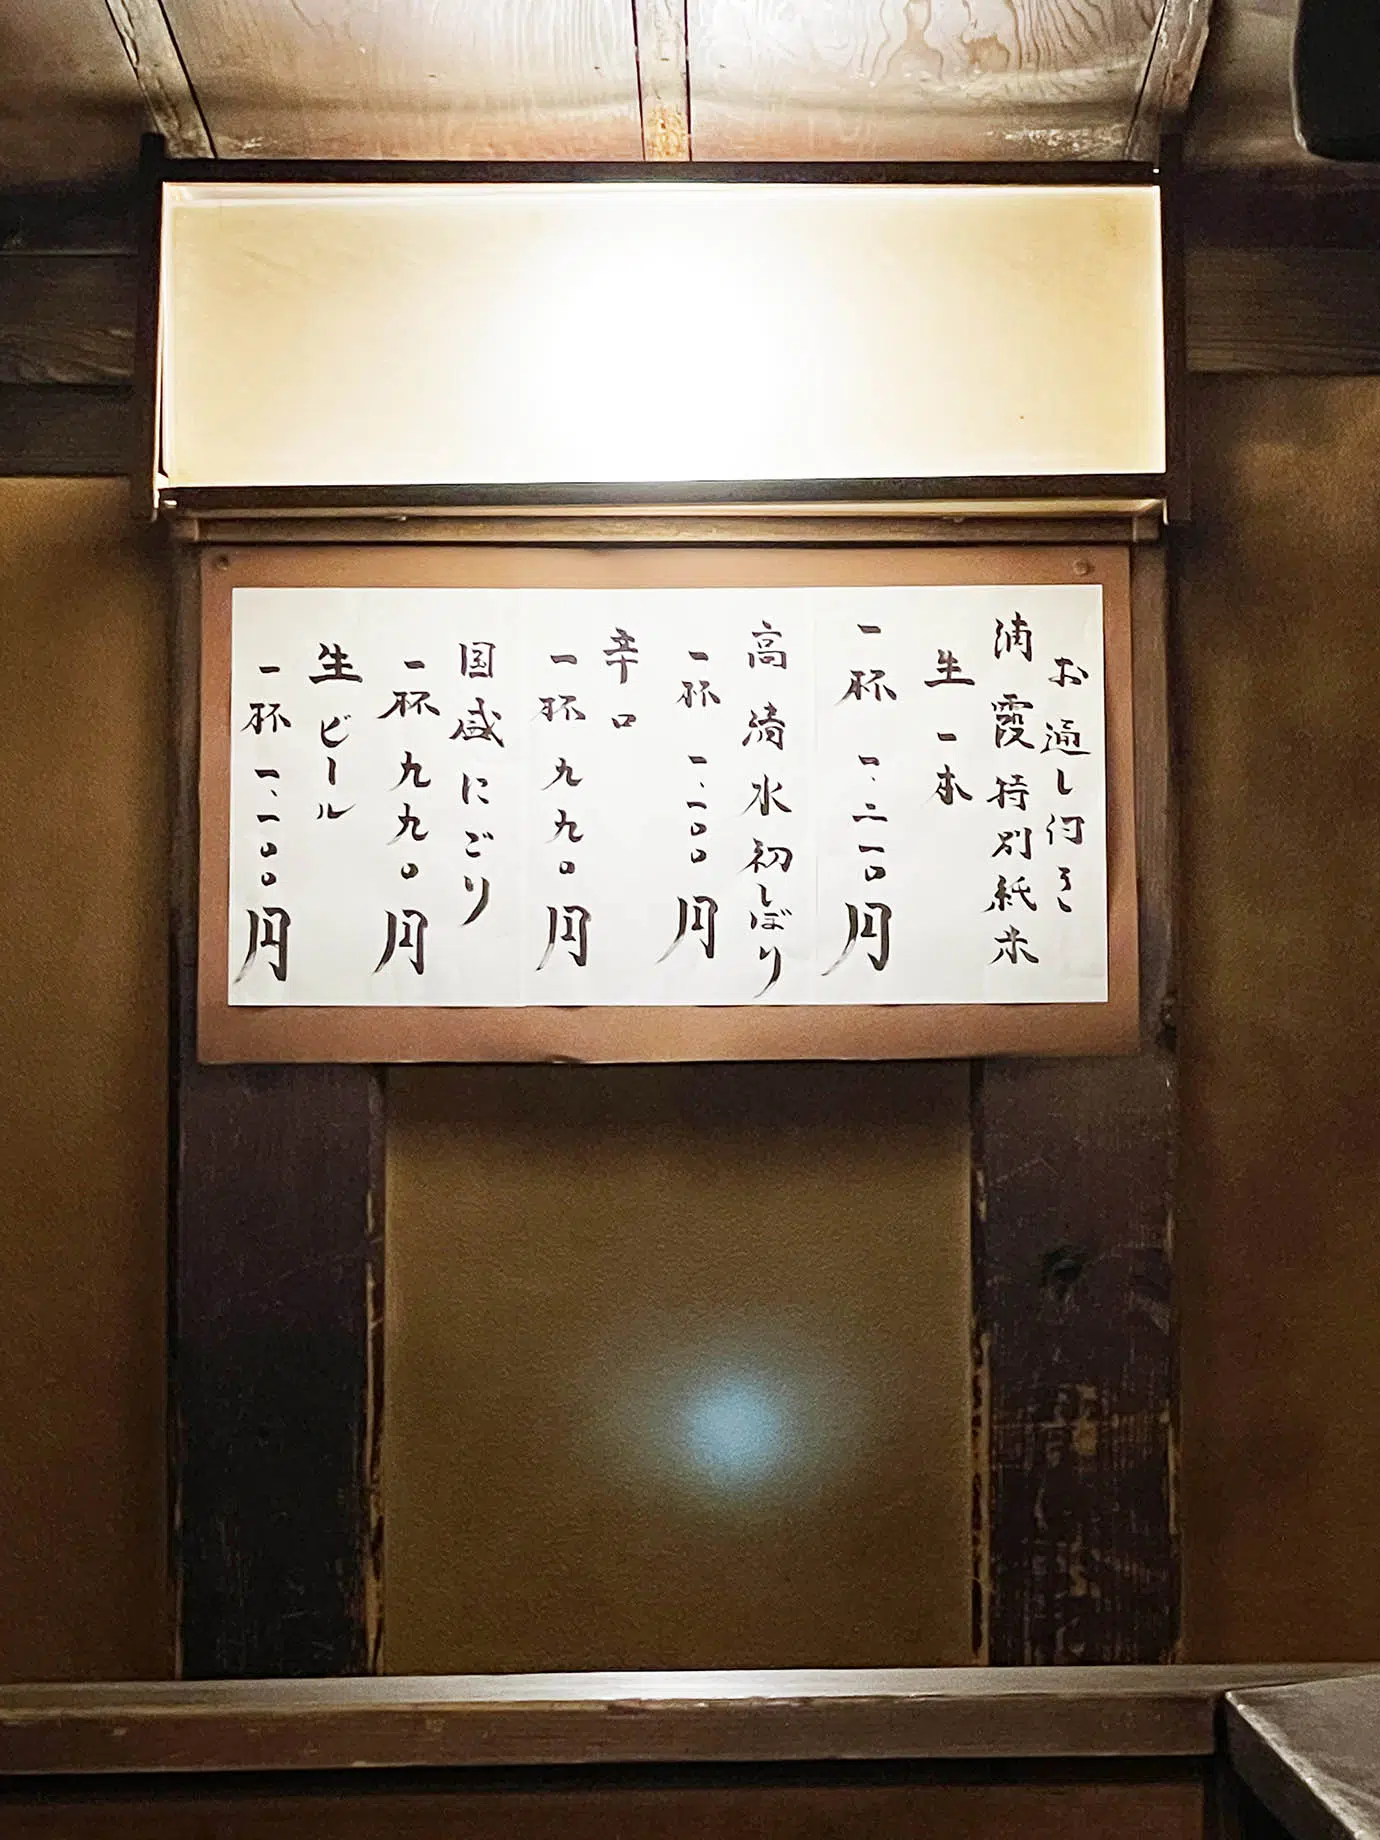 お通し付き
浦霞特別純米
生一本
一杯 一、二一〇円
高清水初しぼり
一杯 一、一〇〇円
辛口
一杯 九九〇円
国盛にごり
一杯 九九〇円
生ビール
一杯 一、一〇〇円